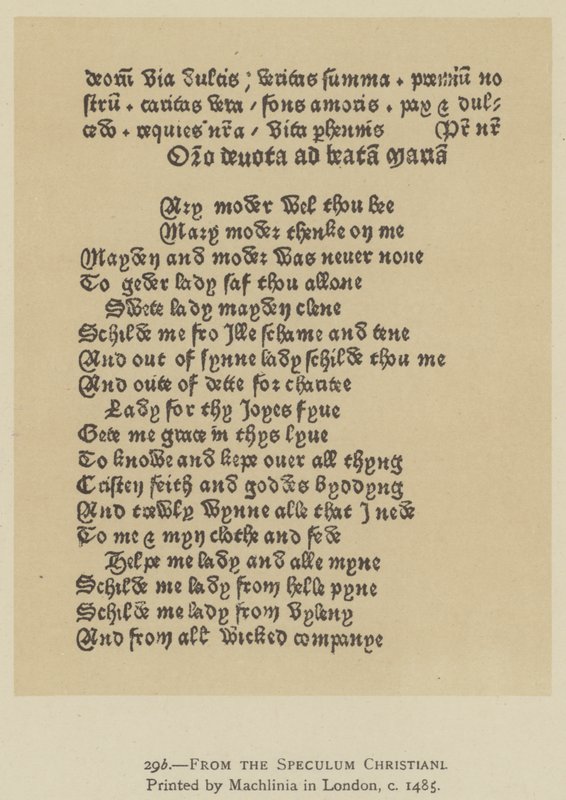 deorū via dulcis ; veritas summa . premiū no
strū . caritas vera / fons amoris . pax & dul-
cedo . requies nr̄a / vita phennis (Pr̄ nr̄
Or̄o deuota ad beatā Mariā
(Ary moder wel thou bee
(Mary moder thenke on me
Mayden and moder was neuer none
To geder lady saf thou allone
Swete lady mayden clene
Schilde me fro Ille schame and tene
And out of synne lady schilde thou me
And oute of dette for charitee
Lady for thy Joyes fyue
Gete me grace in thys lyue
To knowe and kepe ouer all thyng
Cristen feith and goddes byddyng
And trewly wynne alle that I nede
To me & myn clothe and fede
Helpe me lady and alle myne
Schilde me lady from helle pyne
Schilde me lady from vyleny
And from all wicked companye
29b.—FROM THE SPECULUM CHRISTIANI.
Printed by Machlinia in London, c. 1485.